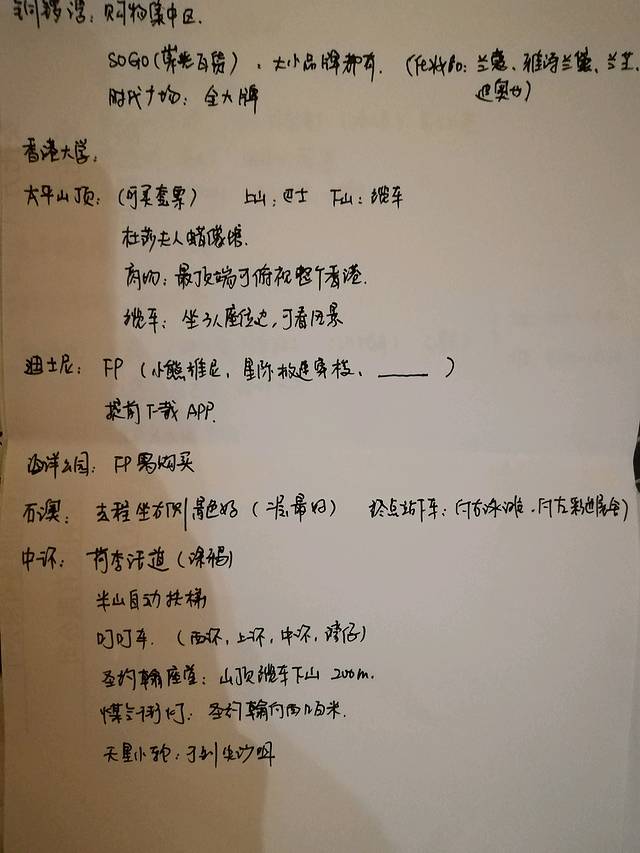 铜锣湾：购物集中区.
SOGO（崇光百货）、大小品牌都有.（化妆品：兰蔻、雅诗兰黛、兰芝、
迪奥也）
时代广场：全大牌
香港大学：
太平山顶：（可买套票） 上山：巴士 下山：缆车
杜莎夫人蜡像馆.
商场：最顶端可俯视整个香港.
缆车：坐3人座位边，可看风景
迪士尼：FP（小熊维尼、星际、____）
提前下载APP.
海洋公园：FP需购买
石澳：去程坐右侧景色好（二层最好） 终点站下车：向右泳滩、向左彩色屋舍）
中环：荷李活道（涂鸦）
半山自动扶梯
叮叮车.（西环，上环，中环，湾仔）
圣约翰座堂：山顶缆车下山 200m.
煤气街灯：圣约翰向西几百米.
天星小轮：可到尖沙咀